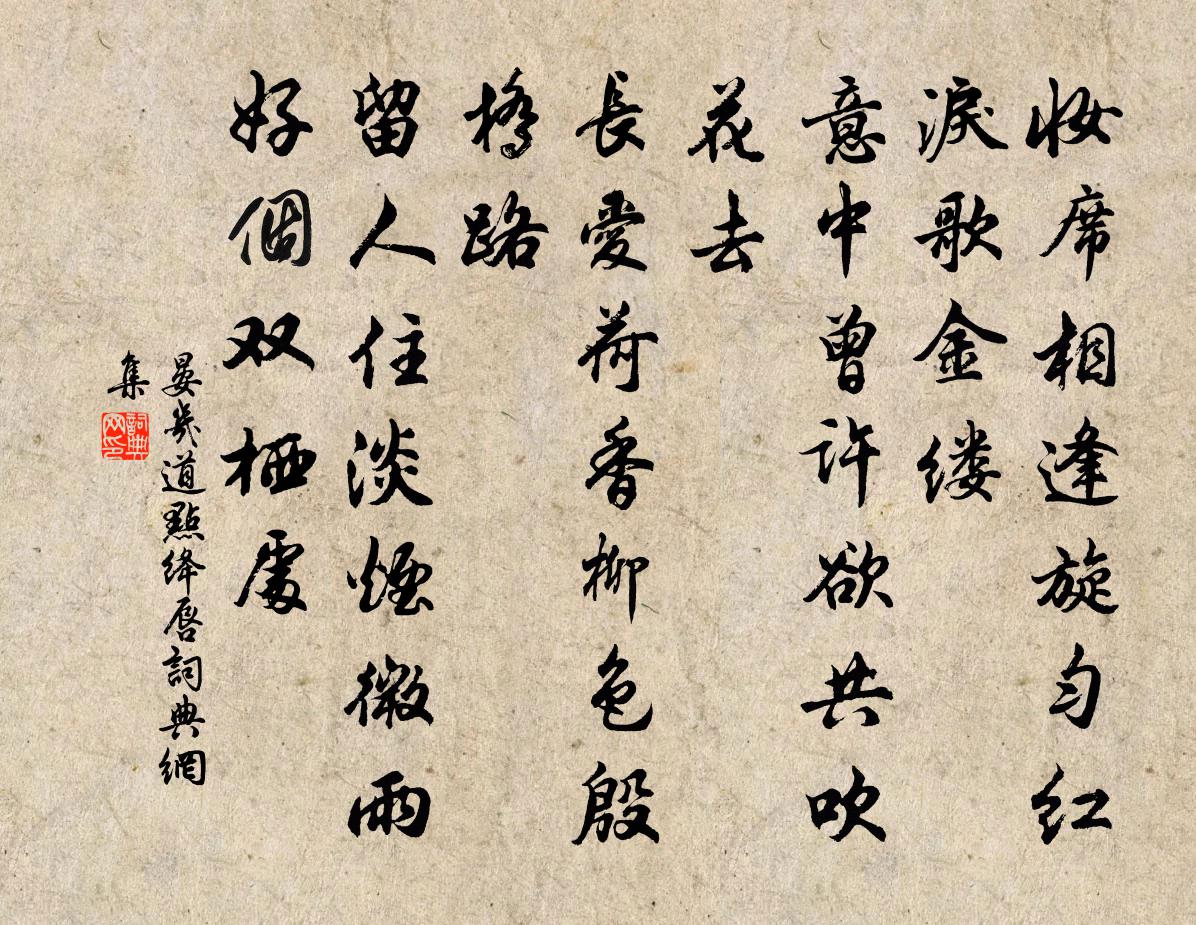 妆席相逢旋匀红
淚歌金缕
意中曾许欲共吹
花去
長愛荷香柳色殷
橋路
留人住淡煙微雨
好個双栖處
晏幾道點绛唇詞典網
集
詞典
网印